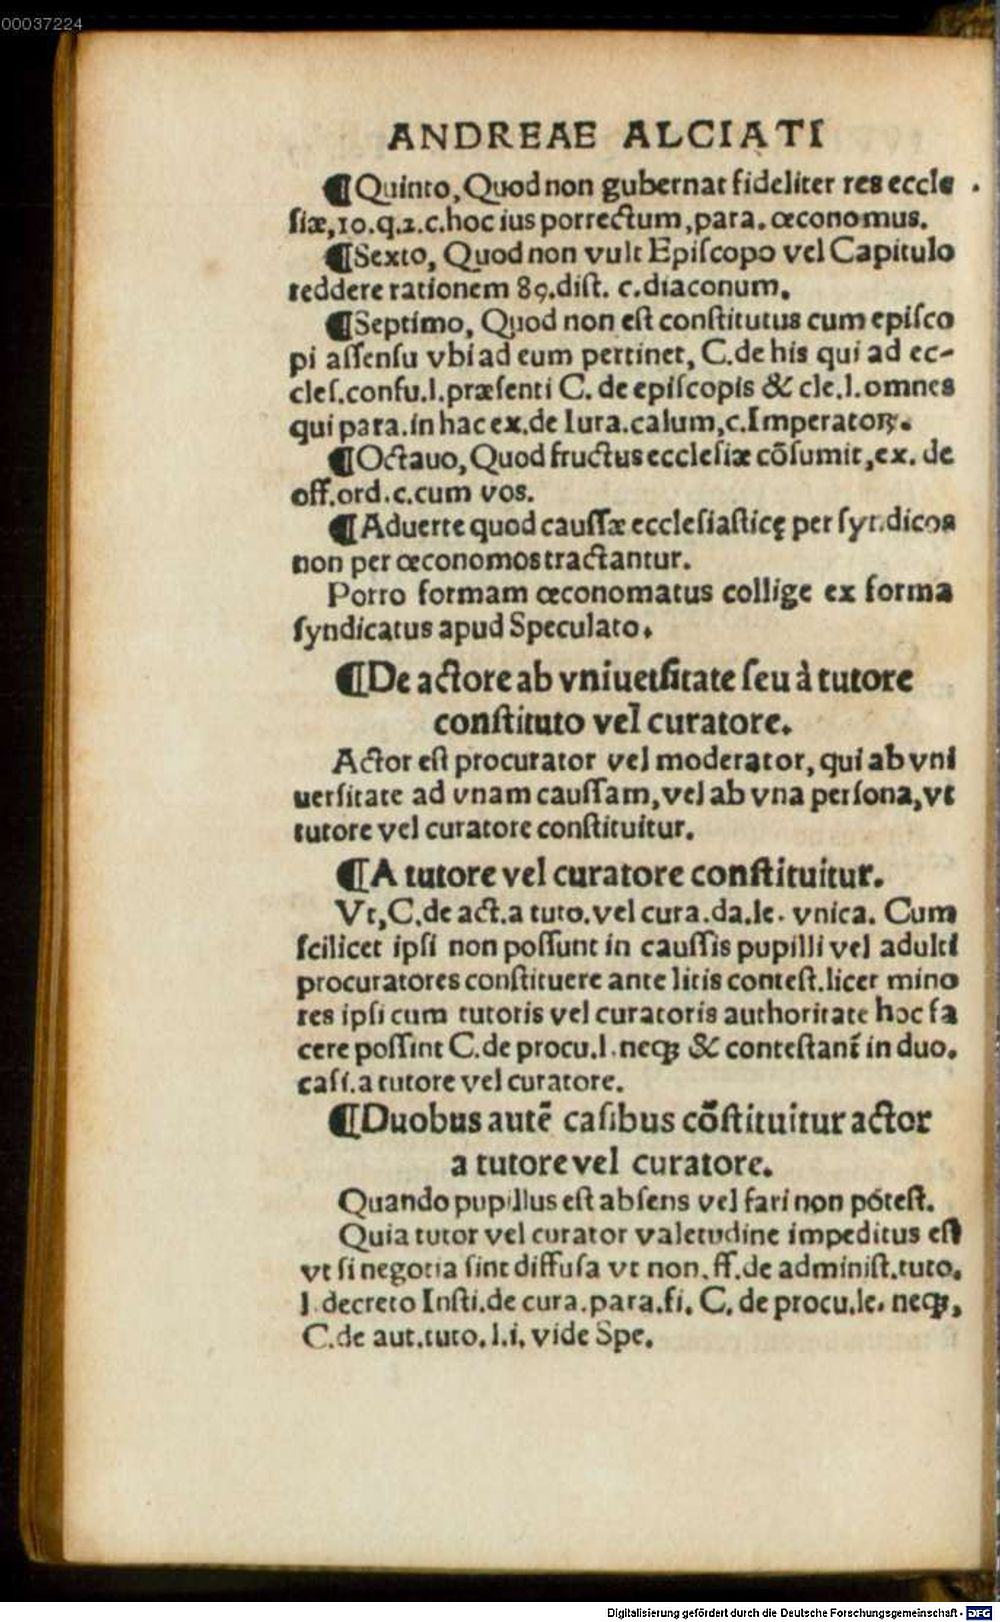 00037224
ANDREAE ALCIATI
¶Quinto, Quod non gubernat fideliter res eccle
ſiæ, 10.q.2.c.hoc ius porrectum, para. œconomus.
¶Sexto, Quod non vult Epiſcopo vel Capitulo
reddere rationem 89.diſt. c.diaconum.
¶Septimo, Quod non eſt conſtitutus cum epiſco
pi aſſenſu vbi ad eum pertinet, C.de his qui ad ec-
cleſ.confu.l.præſenti C. de epiſcopis & cle.l.omnes
qui para.in hac ex.de Iura.calum, c.Imperatoꝝ.
¶Octauo, Quod fructus eccleſiæ cõſumit, ex. de
off.ord.c.cum vos.
¶Aduerte quod cauſſæ eccleſiaſticę per ſyndicos
non per œconomos tractantur.
Porro formam œconomatus collige ex forma
ſyndicatus apud Speculato.
¶De actore ab vniuerſitate ſeu à tutore
conſtituto vel curatore.
Actor eſt procurator vel moderator, qui ab vni
uerſitate ad vnam cauſſam, vel ab vna perſona, vt
tutore vel curatore conſtituitur.
¶A tutore vel curatore conſtituitur.
Vt, C.de act.a tuto.vel cura.da.le. vnica. Cum
ſcilicet ipſi non poſſunt in cauſſis pupilli vel adulti
procuratores conſtituere ante litis conteſt.licet mino
res ipſi cum tutoris vel curatoris authoritate hoc fa
cere poſſint C.de procu.l.neqꝫ & conteſtant̃ in duo.
caſi.a tutore vel curatore.
¶Duobus autẽ caſibus cõſtituitur actor
a tutore vel curatore.
Quando pupillus eſt abſens vel fari non póteſt.
Quia tutor vel curator valetudine impeditus eſt
vt ſi negotia ſint diffuſa vt non.ff.de adminiſt.tuto.
l.decreto Inſti.de cura.para.fi. C. de procu.le. neqꝫ,
C.de aut.tuto.l.i. vide Spe.
Digitalisierung gefördert durch die Deutsche Forschungsgemeinschaft - DFG